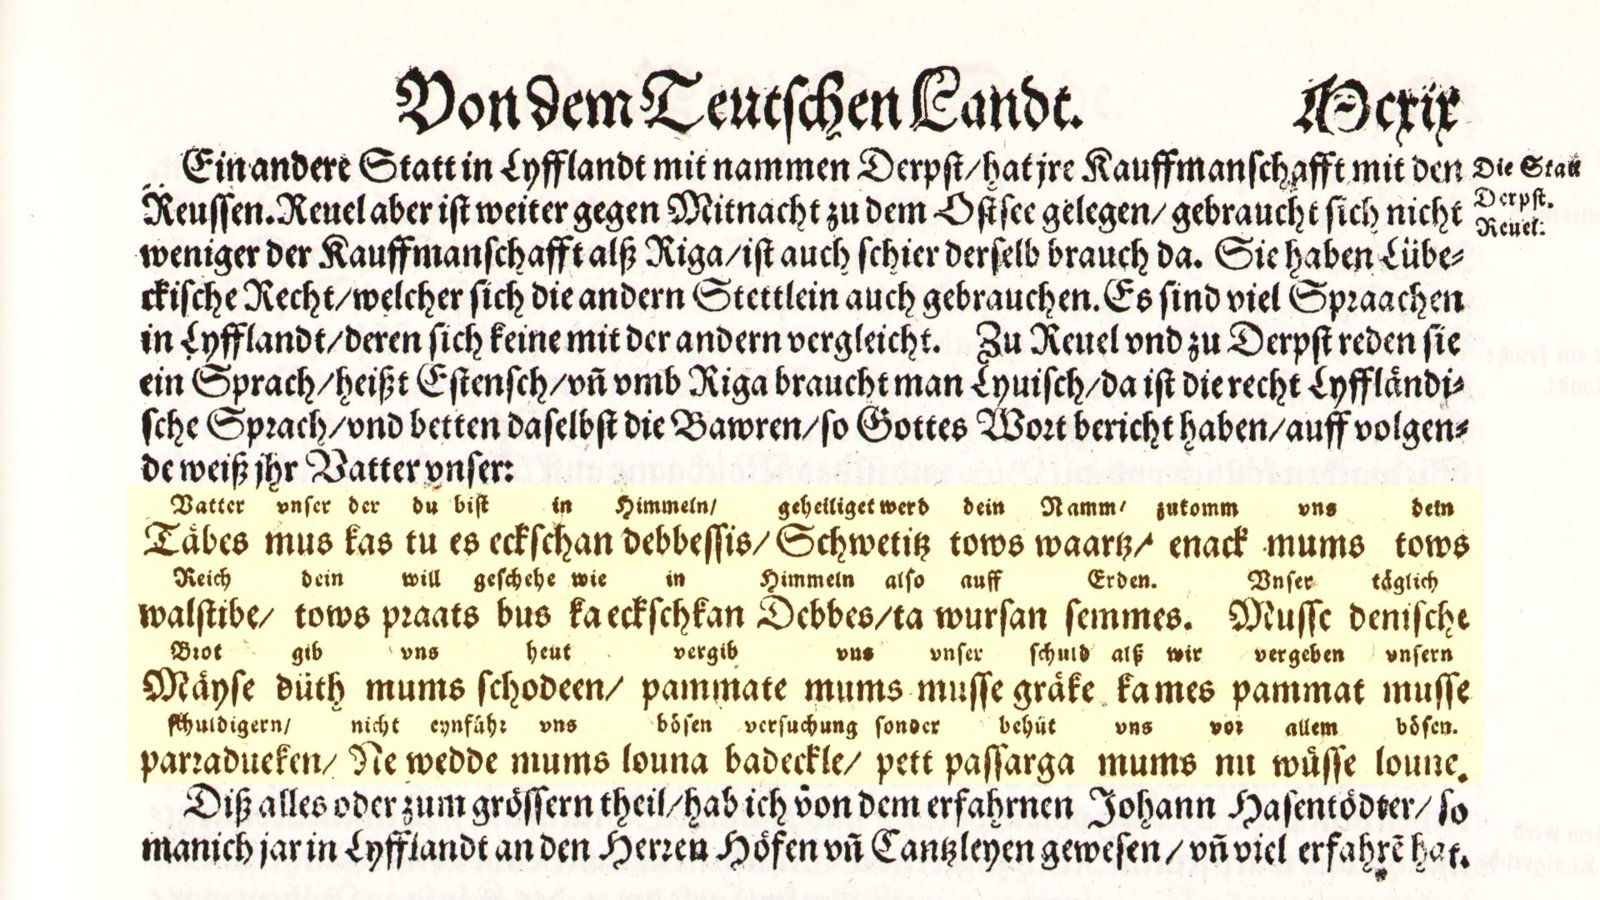 Von dem Teutschen Landt. Mcxix
Ein andere Statt in Lyfflandt mit nammen Derpst/ hat jre Kauffmanschafft mit den
Die Statt
Reussen. Reuel aber ist weiter gegen Mitnacht zu dem Ostsee gelegen/ gebraucht sich nicht
Derpst.
Reuel.
weniger der Kauffmanschafft alß Riga/ ist auch schier derselb brauch da. Sie haben Lübe-
ckische Recht/ welcher sich die andern Stettlein auch gebrauchen. Es sind viel Spraachen
in Lyfflandt/ deren sich keine mit der andern vergleicht. Zu Reuel vnd zu Derpst reden sie
ein Sprach/ heißt Estensch/ vñ vmb Riga braucht man Lyuisch/ da ist die recht Lyffländi-
sche Sprach/ vnd betten daselbst die Bawren/ so Gottes Wort bericht haben/ auff volgen-
de weiß jhr Vatter vnser:
Vatter vnser der du bist in Himmeln/ geheiliget werd dein Namm/ zukomm vns dein
Täbes mus kas tu es eckschan debbessis/ Schwetitz tows waartz/ enack mums tows
Reich dein will geschehe wie in Himmeln also auff Erden. Vnser täglich
walstibe/ tows praats bus ka eckschkan Debbes/ ta wursan semmes. Musse denische
Brot gib vns heut vergib vns vnser schuld alß wir vergeben vnsern
Mäyse düth mums schodeen/ pammate mums musse gräke ka mes pammat musse
schuldigern/ nicht eynführ vns bösen versuchung sonder behüt vns vor allem bösen.
parradueken/ Ne wedde mums louna badeckle/ pett passarga mums nu wüsse loune.
Diß alles oder zum grössern theil/ hab ich von dem erfahrnen Johann Hasentödter/ so
manich jar in Lyfflandt an den Herren Höfen vñ Cantzleyen gewesen/ vñ viel erfahrẽ hat.